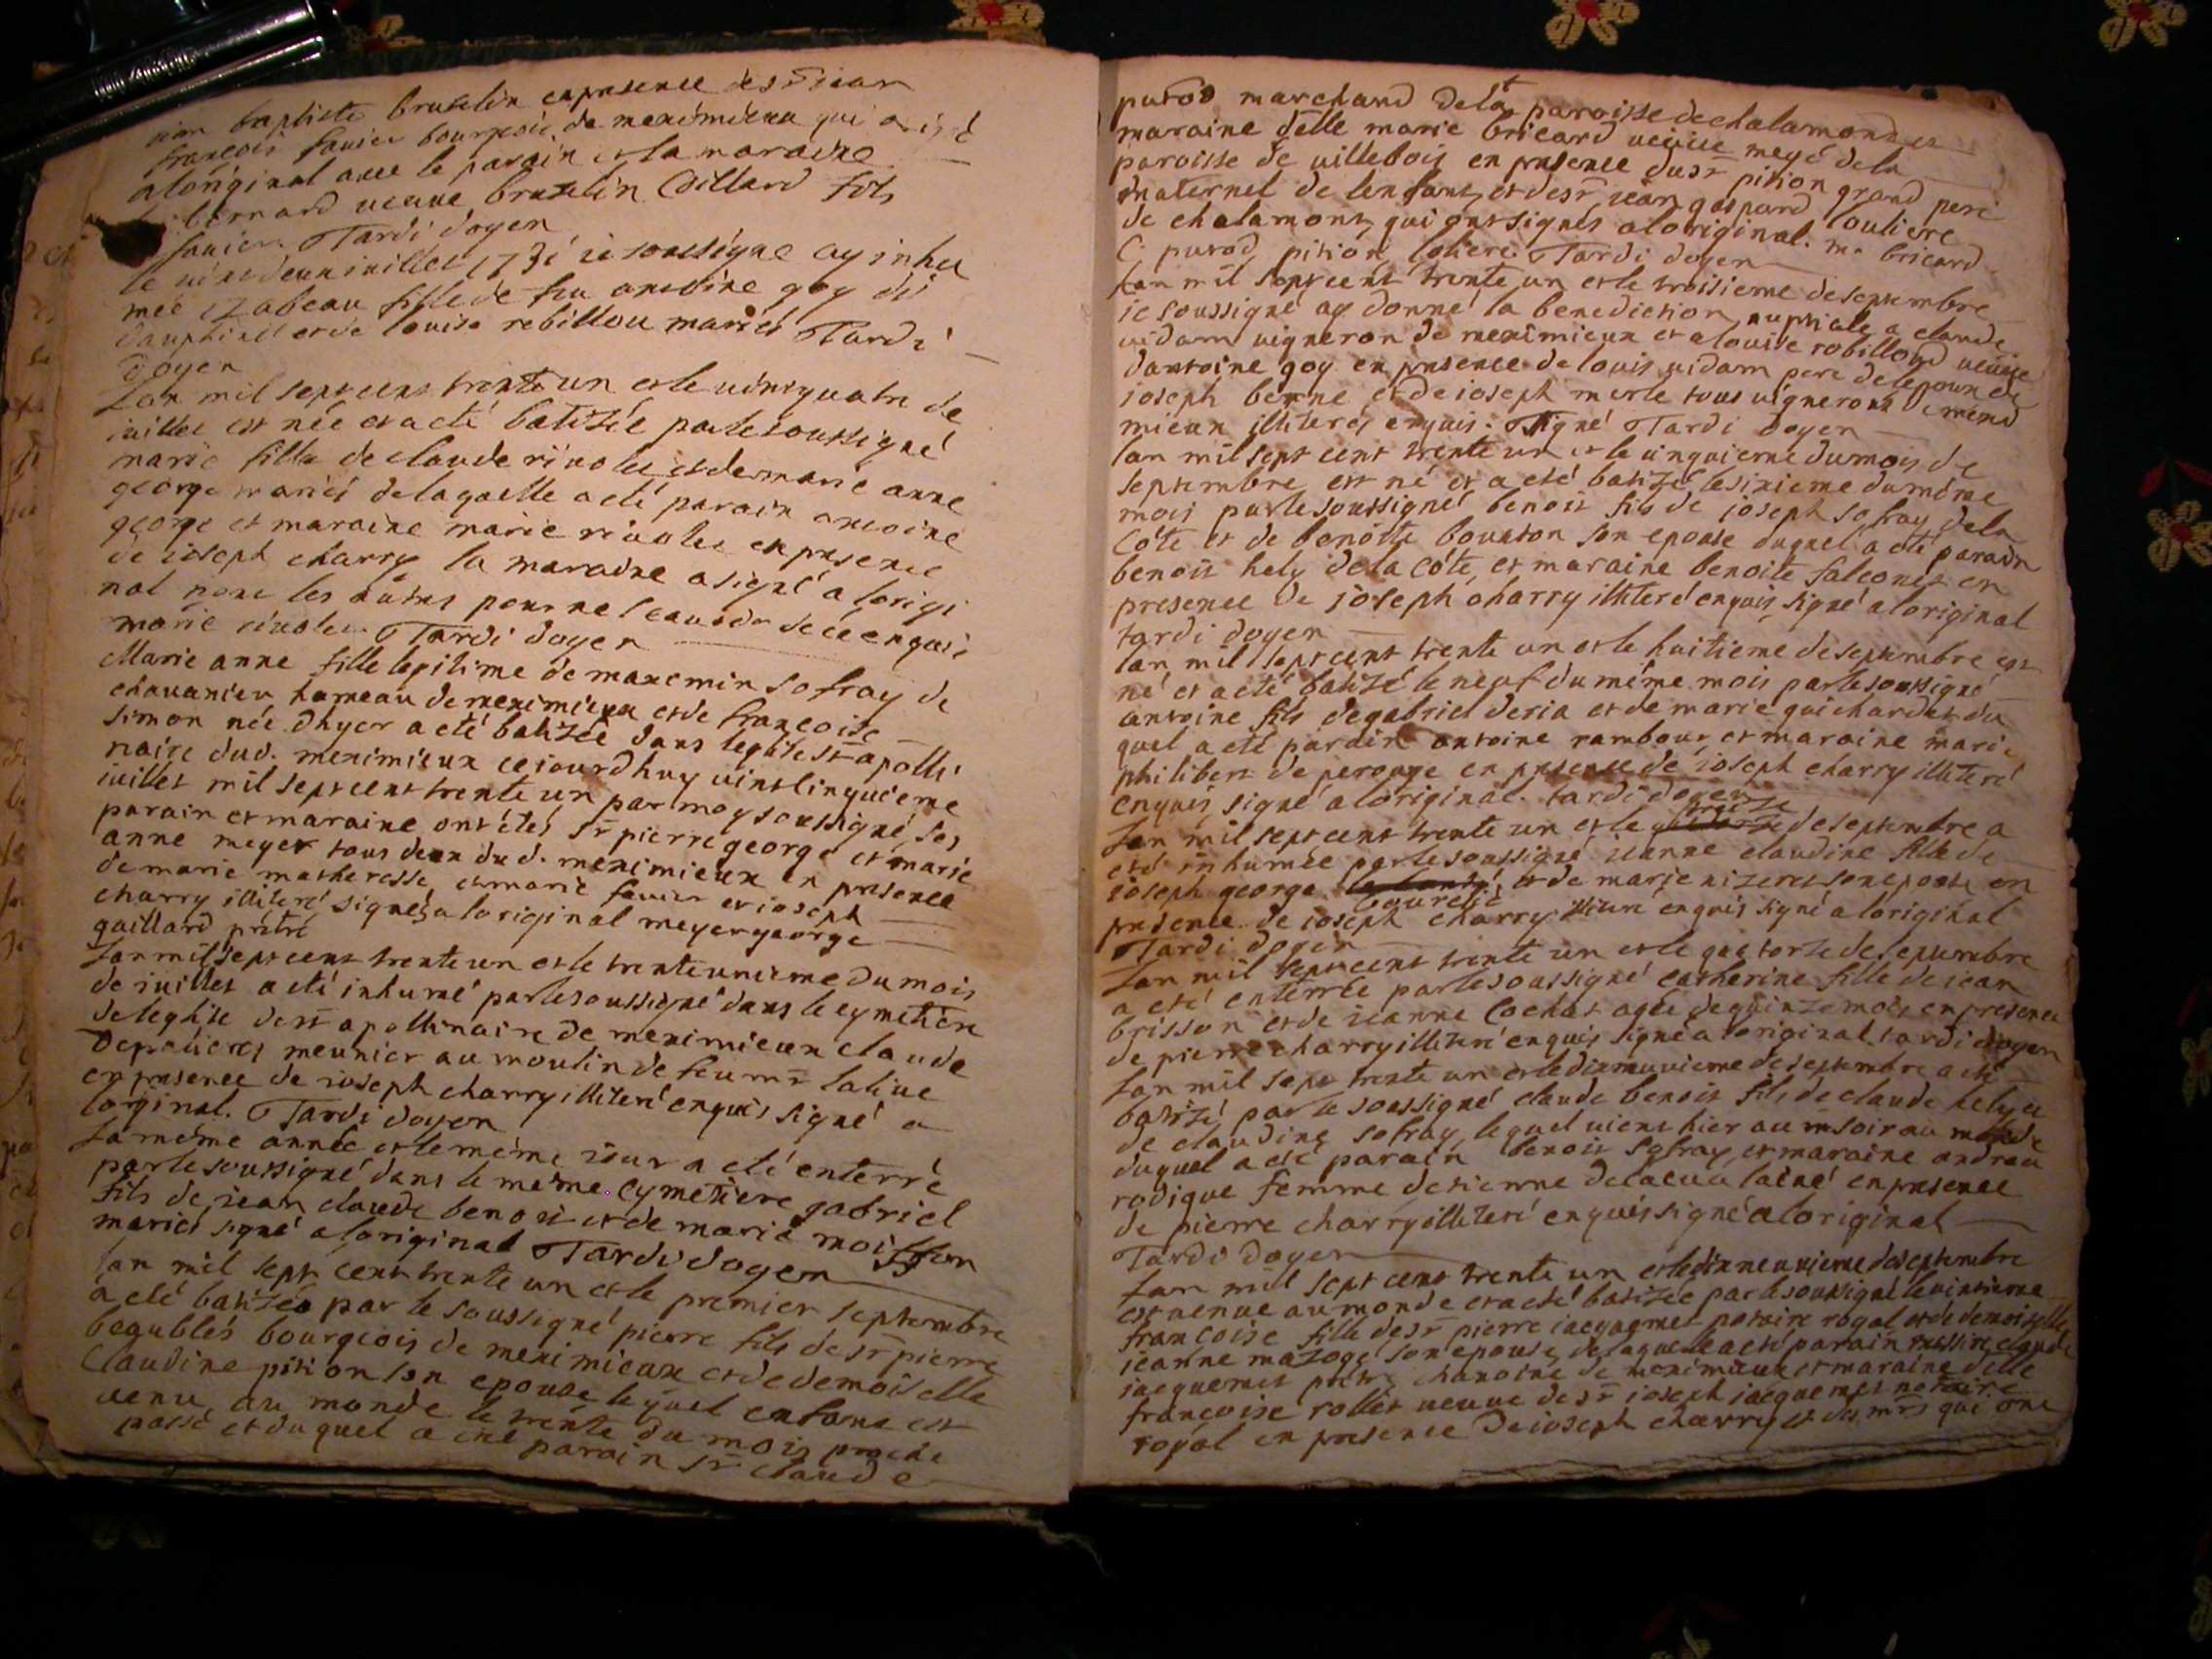 jean baptiste bruxelin en presence de sr jean
françois favier bourgeois de meximieux qui a signé
a loriginal avec le parain et la maraine
bernard veuve bruxelin Coillard fils
favier. Tardi doyen
le vint deux juillet 1731 je soussigné ay inhu
mée izabeau fille de feu antoine goy du
dauphiné et de louise rebillou mariés Tardi
doyen
Lan mil sept cent trente un et le vint quatre de
juillet est née et a eté batizée par le soussigné
marie fille de claude rivolet et de marie anne
george mariés de laquelle a eté parain antoine
george et maraine marie rivolet en presence
de joseph charry la maraine a signé a lorigi
nal non les autres pour ne scavoir de ce enquis
marie rivolet. Tardi doyen
Marie anne fille legitime de maxemin sofray de
chavanieu hameau de meximieux et de françoise
simon née dhyer a eté batizée dans leglise st apolli
naire dud. meximieux ce jourdhuy vint cinquieme
juillet mil sept cent trente un par moy soussigné, ses
parain et maraine ont étés sr pierre george et marie
anne meyer tous deux dud. meximieux en presence
de marie matheresse, et marie favier et joseph
charry illiteré signés a loriginal meyer george
gaillard prêtre
Lan mil sept cent trente un et le trente unieme du mois
de juillet a eté inhumé par le soussigné dans le cymetiere
de leglise de st apollinaire de meximieux claude
Depolieres meunier au moulin de feu mr lalive
en presence de joseph charry illiteré enquis signé a
lorginal. Tardi doyen
La même année et le même jour a eté enterré
par le soussigné dans le même cymetiere gabriel
fils de jean claude benoit et de marie moisson
mariés signé a loriginal Tardi doyen
lan mil sept cent trente un et le premier septembre
a eté batizé par le soussigné pierre fils de sr pierre
begublés bourgeois de meximieux et de demoiselle
Claudine pition son epouse lequel enfant est
venu au monde le trente du mois proche
passé et duquel a eté parain sr claude
purod marchand de la paroisse de chalamont et
maraine delle marie bricard veuve megé de la
paroisse de villebois en presence du sr pition grand pere
maternel de lenfant, et de sr jean gaspard louliere
de chalamont, qui ont signés a loriginal. me bricard
C purod, pition loliere. Tardi doyen
Lan mil sept cent trente un et le troisieme de septembre
je soussigné ay donné la benediction nuptiale a claude
vidam vigneron de meximieux et a louise robillord veuve
dantoine goy en presence de louis vidam pere de lepoux de
joseph berne et de joseph merle tous vignerons de mexi
mieux illiterés enquis. Signé Tardi doyen
lan mil sept cent trente un et le cinquieme du mois de
septembre est né et a eté batizé le sixieme du même
mois par le soussigné benoit fils de joseph sofray de la
Côte et de benoite bourton son epouse duquel a eté parain
benoit hely de la côte, et maraine benoite falconet en
presence de joseph charry illiteré enquis, signé a loriginal
tardi doyen
lan mil sept cent trente un et le huitieme de septembre est
né et a eté batizé le neuf du même mois par le soussigné
antoine fils de gabriel deria et de marie guichardet du
quel a eté parain antoine rambour et maraine marie
philibert de perouge en presence de joseph charry illiteré
enquis, signé a loriginal. tardi doyen
Lan mil sept cent trente un et le treize de septembre a
eté inhumée par le soussigné jeanne claudine fille de
joseph george bourelié, et de marie nizeret son epouse en
presence de joseph charry illiteré enquis signé a loriginal
Tardi doyen
Lan mil sept cent trente un et le quatorse de septembre
a eté enterrée par le soussigné catherine fille de jean
brisson et de jeanne Cochat agée de quinze mois, en presence
de pierre charry illiteré enquis signé a loriginal tardi doyen
Lan mil sept trente un et le dixneuvieme de septembre a eté
batizé par le soussigné claude benoit fils de claude hely et
de claudine sofray, lequel vient hier au soir au monde
duquel a eté parain benoit sofray, et maraine andrea
rodique femme detienne delacua lainé en presence
de pierre charry illiteré enquis signé a loriginal
Tardi doyen
Lan mil sept cent trente un et le dixneuvieme de septembre
est venue au monde et a eté batizée par le soussigné le vintieme
françoise fille de sr pierre jacquemet notaire royal et de demoiselle
jeanne mazoge son epouse, de laquelle a eté parain messire claude
jacquemet pretre chanoine de meximieux et maraine delle
françoise rollet veuve de sr joseph jacquemet notaire
royal en presence de joseph charry et des mrs qui ont